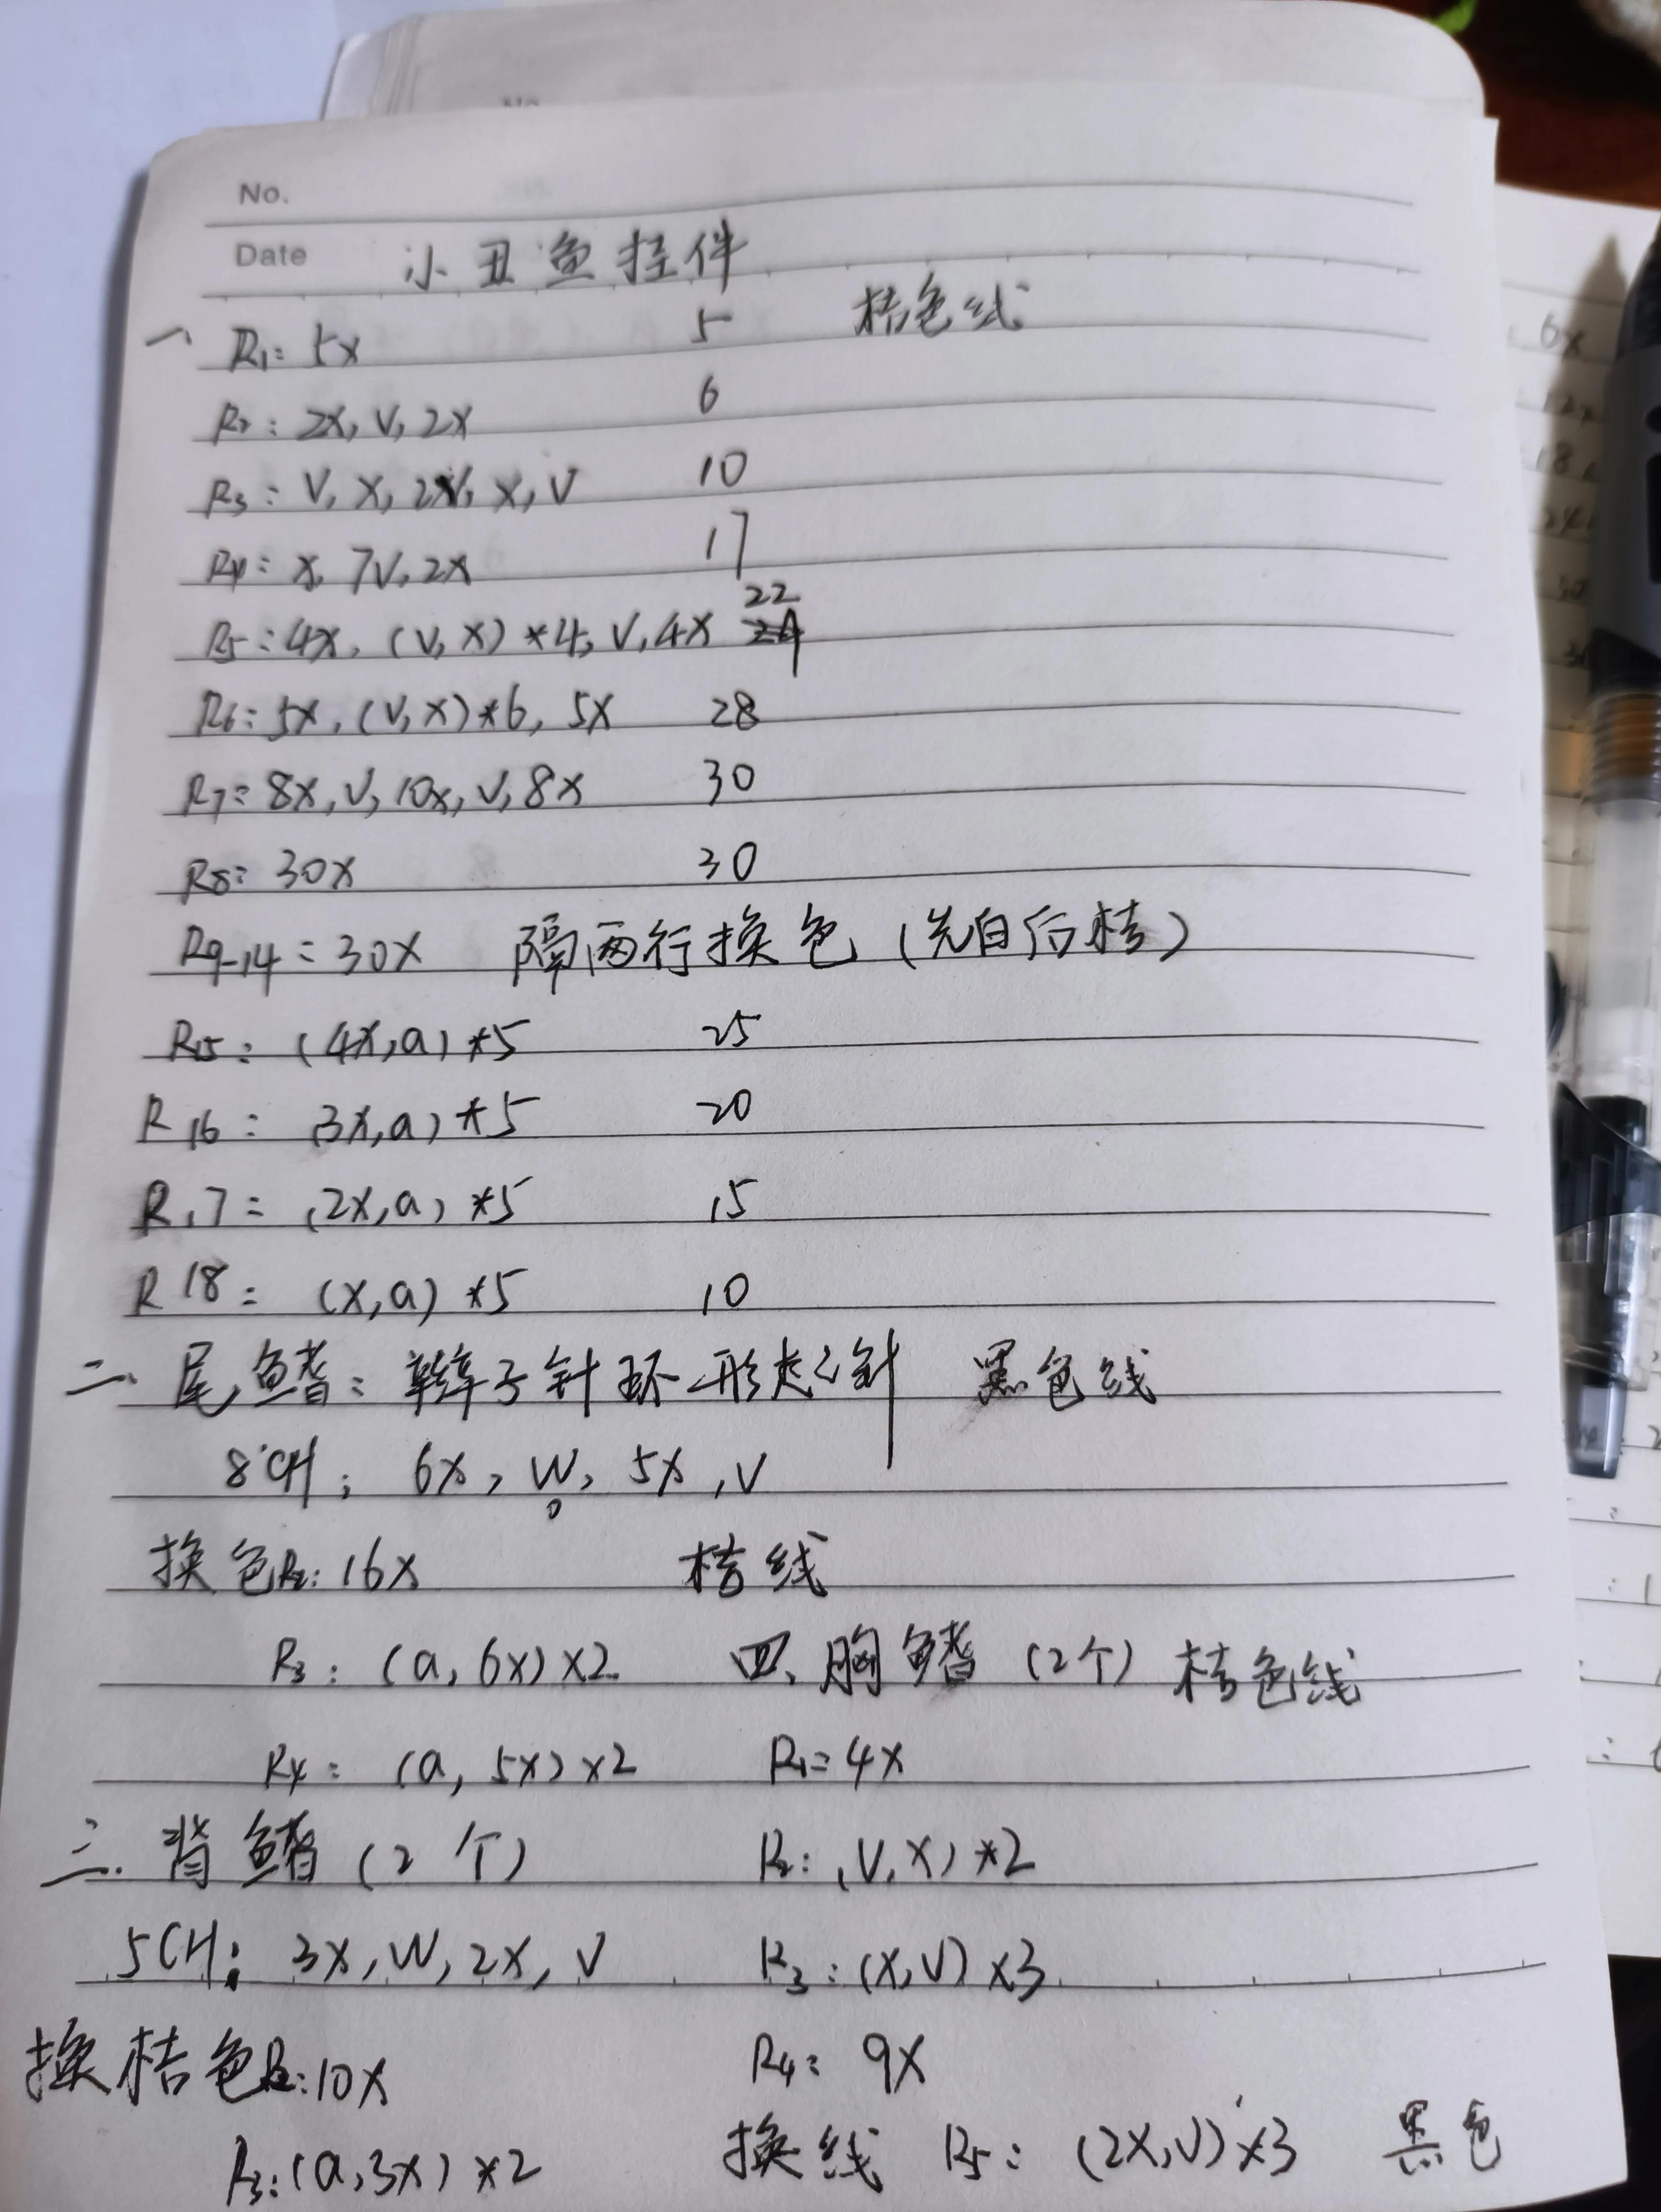 No.
Date 小丑鱼挂件
一、R1: 5x 5 桔色线
R2: 2x, v, 2x 6
R3: V, X, 2V, X, V 10
R4: x, 7V, 2x 17
R5: 4x, (V, X) *4, V, 4X 22
R6: 5x, (V, X) *6, 5X 28
R7: 8x, V, 10x, V, 8x 30
R8: 30x 30
R9-14: 30X 隔两行换色 (先白后桔)
R15: (4X, a) *5 25
R16: (3X, a) *5 20
R17: (2X, a) *5 15
R18: (X, a) *5 10
二、尾鳍: 辫子针环形起针 黑色线
8CH; 6x, W, 5x, V
换色R2: 16x 桔线
R3: (a, 6x) x2
R4: (a, 5x) x2
三、背鳍 (2个)
5CH; 3x, W, 2x, V
换桔色R2: 10x
R3: (a, 3x) x2
四、胸鳍 (2个) 桔色线
R1: 4x
R2: (V, X) *2
R3: (X, V) x3
R4: 9X
换线 R5: (2X, V) x3 黑色